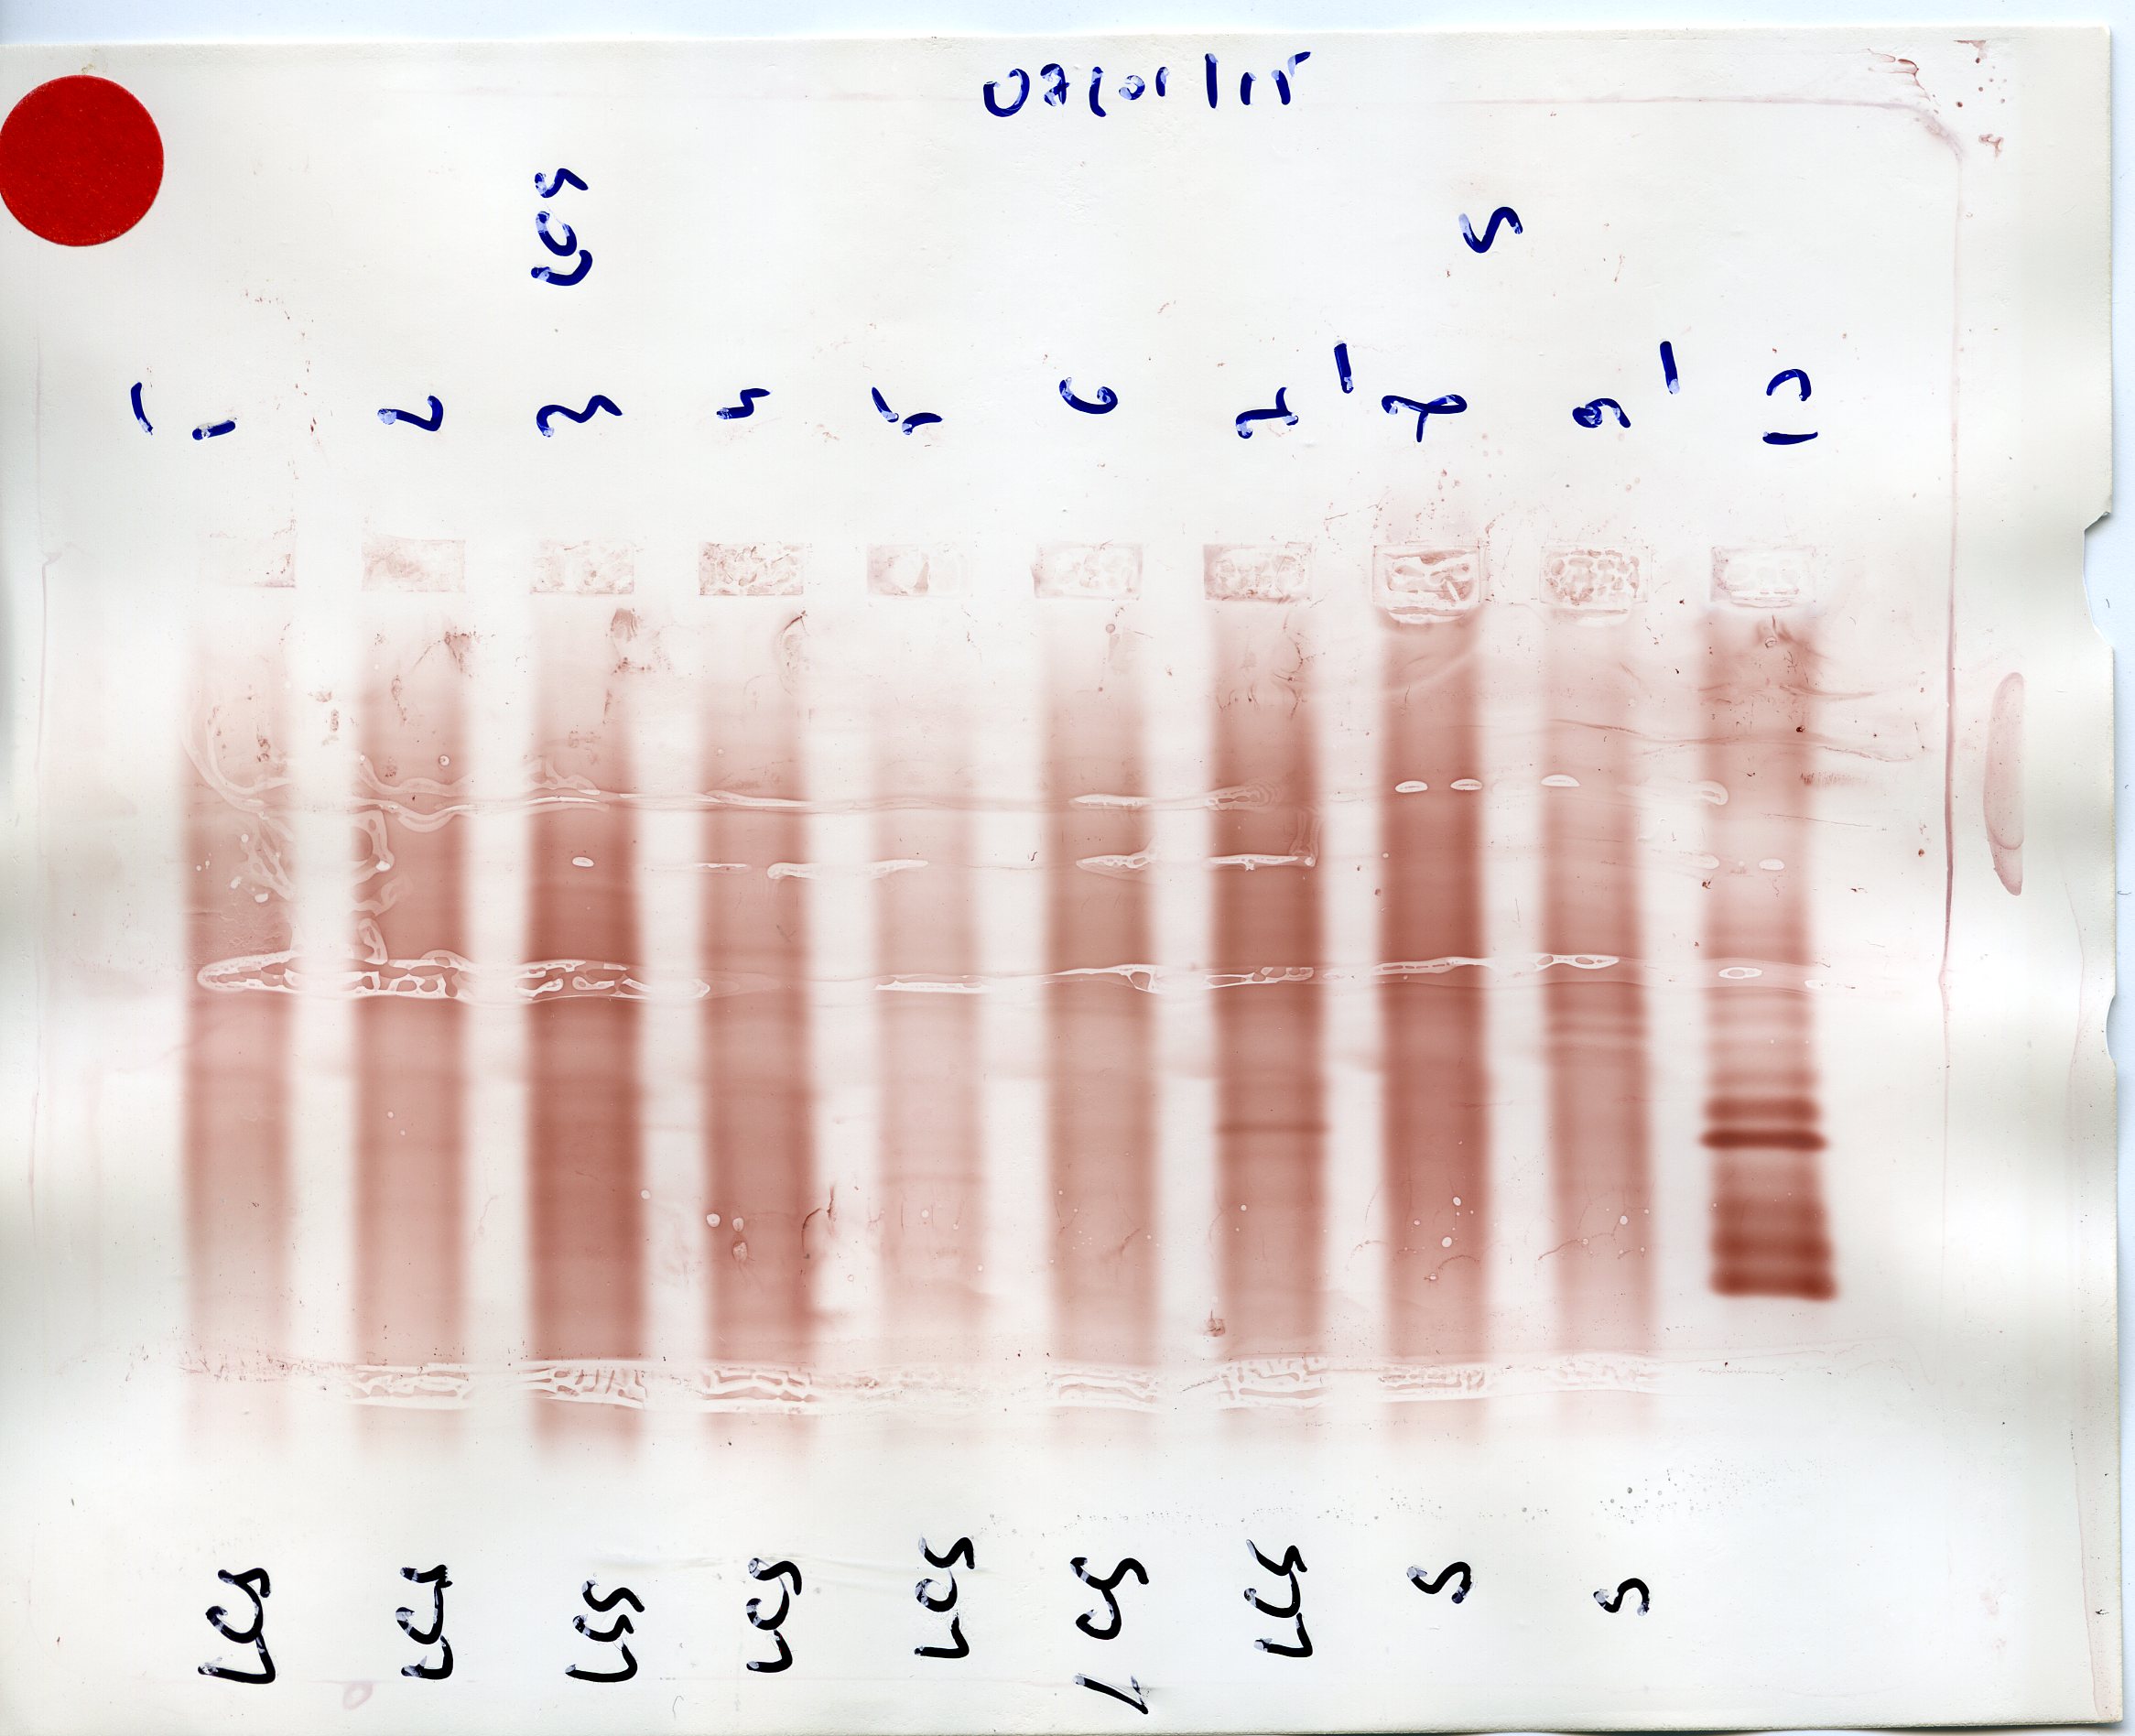 07/01/15
LCS S
1 2 3 4 5 6 7 8 9 10
LCS LCS LCS LCS LCS LCS LCS S S